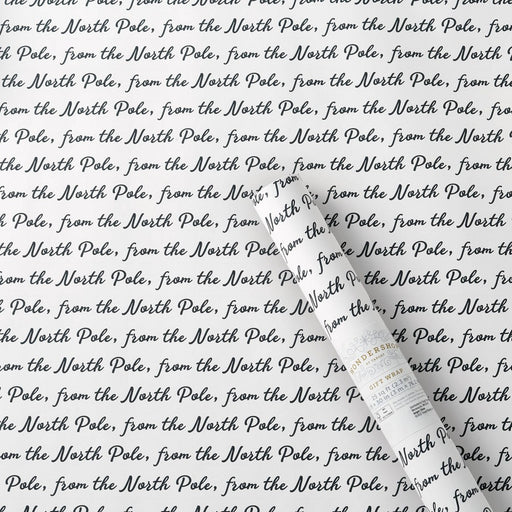 from the North Pole, from the North Pole, from the North
the North Pole, from the North Pole, from the North Pole,
Pole, from the North Pole, from the North Pole, from the
the North Pole, from the North Pole, from the North Pole,
from the North Pole, from the North Pole, from the North
Pole, from the North Pole, from the North Pole, from the
the North Pole, from the North Pole, from the North Pole,
from the North Pole, from the North
Pole, from the North Pole, from the
the North Pole, from the North Pole,
from the North Pole, from the North
Pole, from the North Pole, from the
the North Pole, from the North Pole,
from the North Pole, from the North
Pole, from the North Pole, from the North
the North Pole, from the North Pole, from
from the North Pole, from the North Pole,
Pole, from the North Pole, from the
from the
North Pole
from the
North Pole
from the
WONDERSHOP
GIFT WRAP
North Pole
from the
North